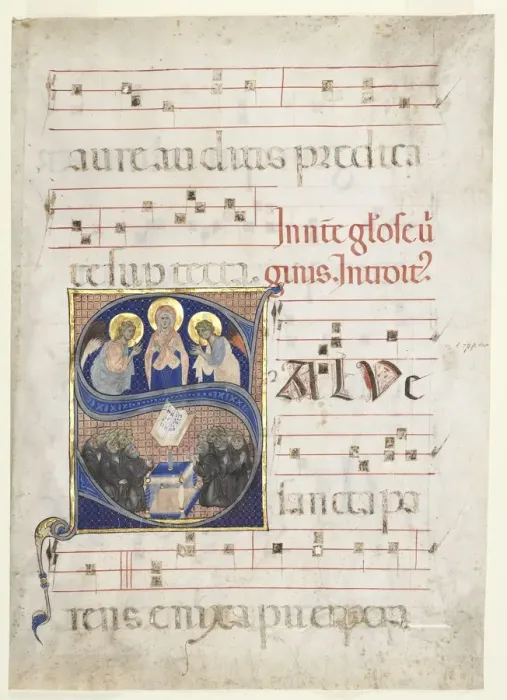 aure auditis predica
te sup tecta. In nat̄e gl̄ose ū
ginis. Introit⁹
SALVE
sancta pa
rens enixa puerpera